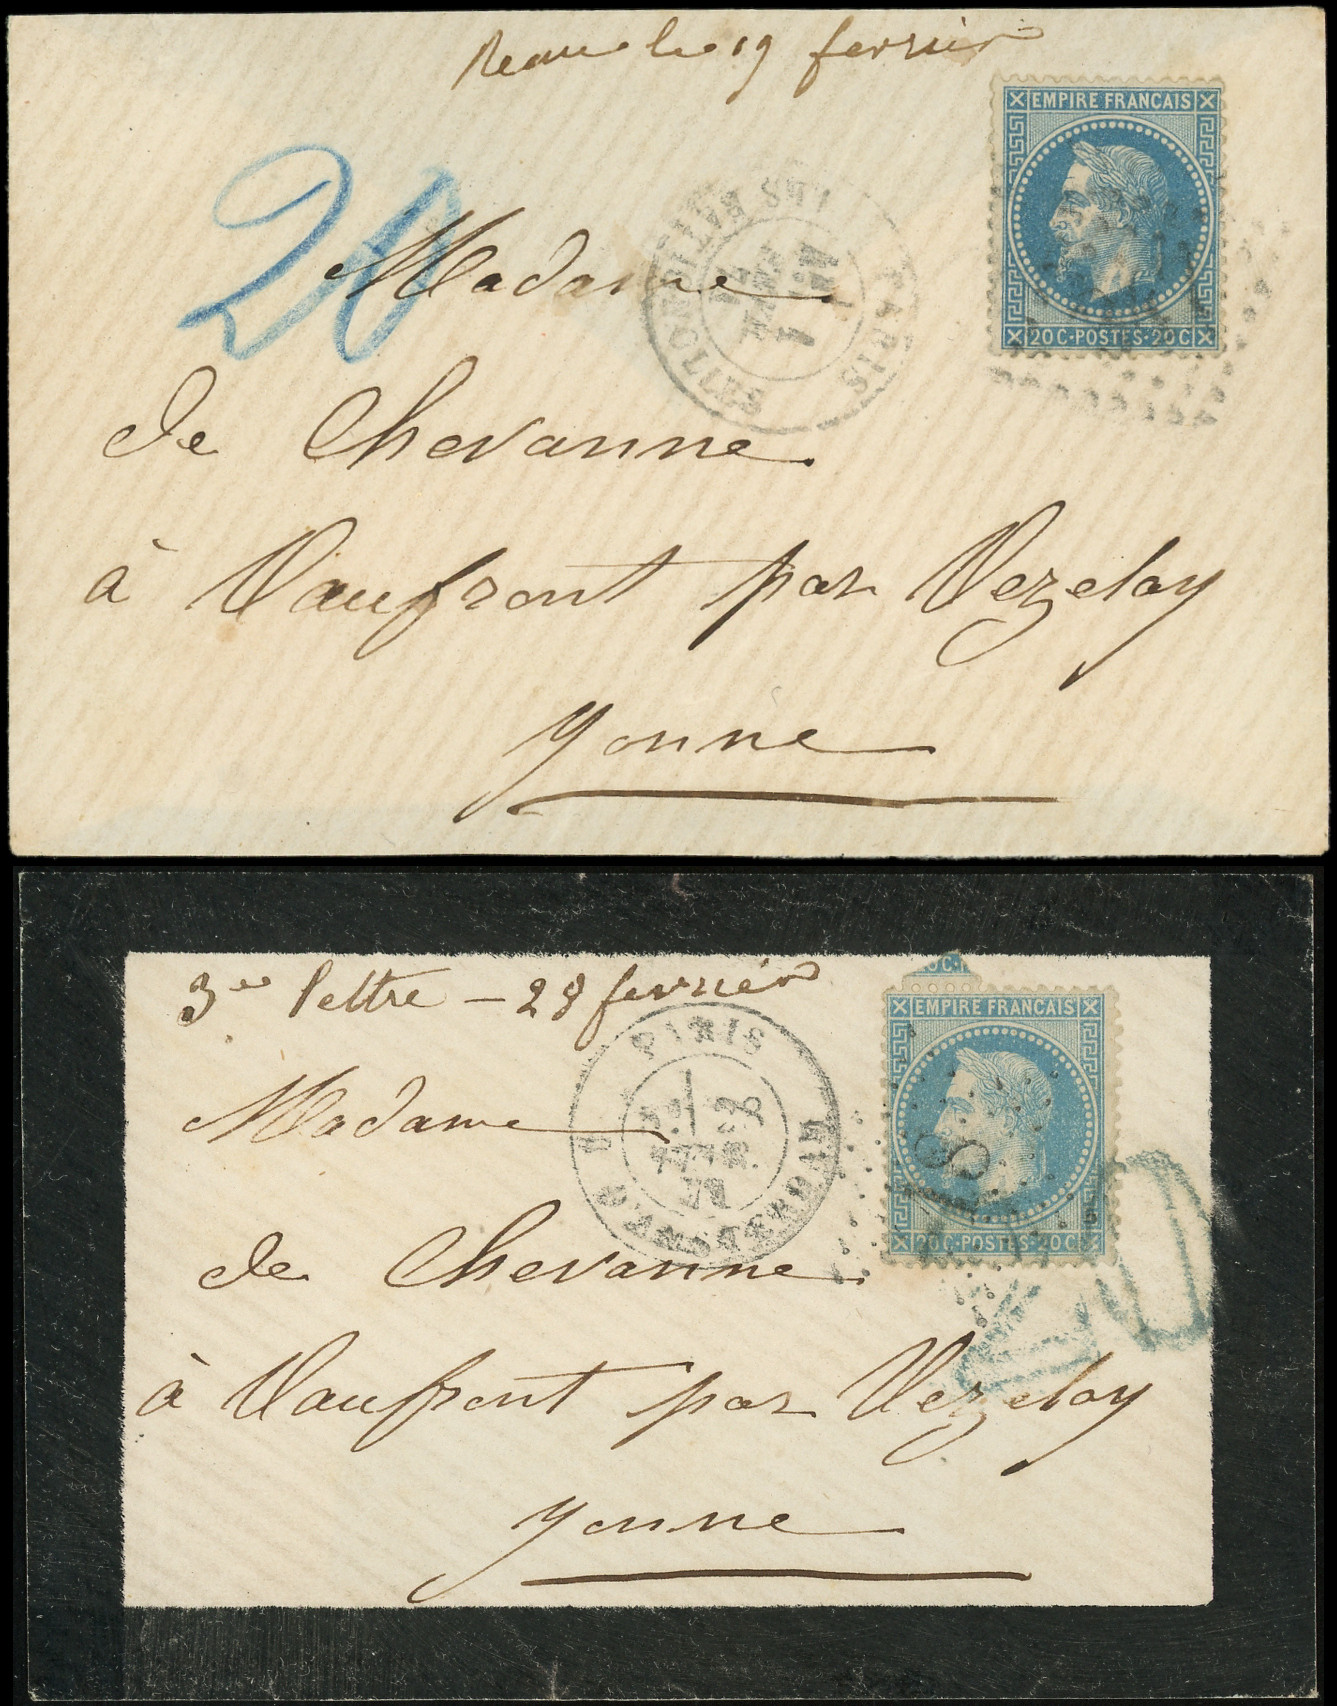 le 19 fevrier
EMPIRE FRANCAIS
20 C·POSTES·20 C
20
PARIS
Madame
de Chevanne
à Vaufront par Vezelay
Yonne
3me lettre - 28 fevrier
EMPIRE FRANCAIS
20 C·POSTES·20 C
PARIS
R. D'AMSTERDAM
71
Madame
20
de Chevanne
à Vaufront par Vezelay
Yonne